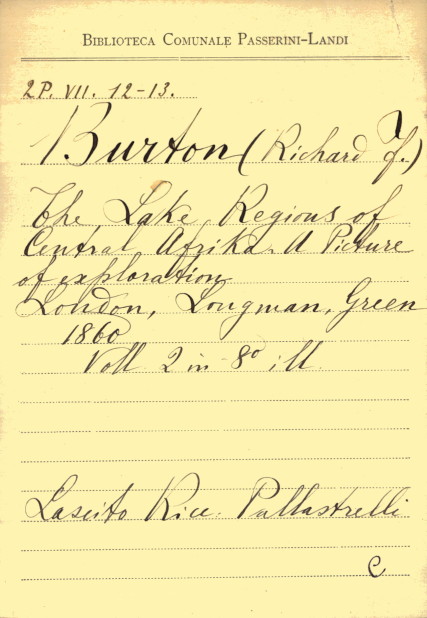 BIBLIOTECA COMUNALE PASSERINI-LANDI
2P. VII. 12-13.
Burton (Richard F.)
The Lake Regions of
Central Afrika. A Picture
of exploration
London, Longman, Green
1860
Voll. 2 in 8° ill.
Lascito Ricc. Pallastrelli
C